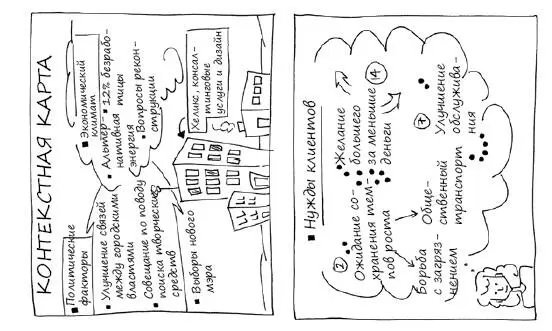 КОНТЕКСТНАЯ КАРТА
Политические
факторы
Улучшение связей
между городскими
властями
Совещание по поводу
поиска творческих
средств
Выборы нового
мэра
Экономический
климат
Альтер-
нативная
энергия
12% безрабо-
тицы
Вопросы рекон-
струкции
Хеликс, консал-
тинговые
услуги и дизайн
Нужды клиентов
2
Ожидание со-
хранения тем-
пов роста
Желание
большего
за меньшие
деньги
14
Борьба
с загряз-
нением
Обще-
ственный
транспорт
7
Улучшение
обслужива-
ния